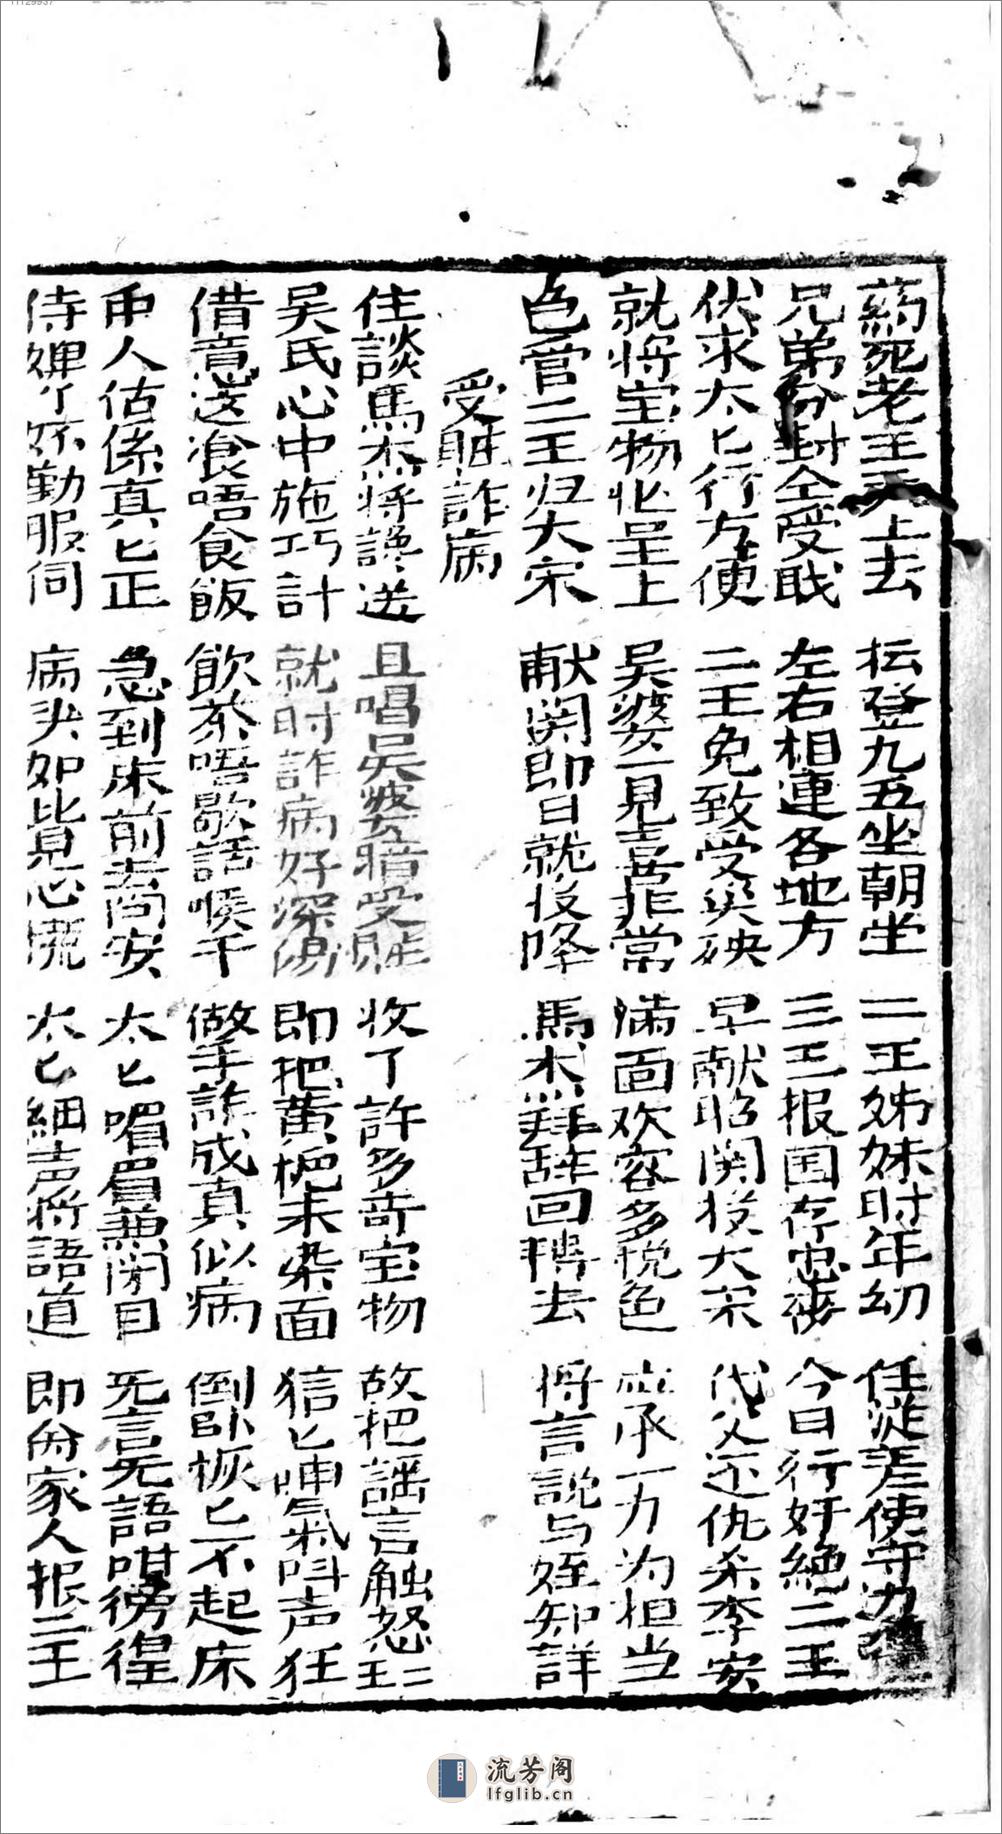 药死老王天上去 抎登九五坐朝堂 二王姊妹时年幼 任從差使守
兄弟份封仝受戝 左右相連各地方 三王报国存忠 今日行奸絶二王
伏求太匕行方便 二王免致受災殃 早献昭関投大宋 代父还仇杀李安
就将宝物忙呈上 吴婆一見喜非常 满面欢容多悦色 应承一力为担当
色管二王归大宋 献関即日就投降 馬杰拜辞回聘去 将言說与姪知詳
受賍詐病
住談馬杰将謗送 且唱吴婆暗受賍 收了許多奇宝物 故把謡言触怒王
吴氏心中施巧計 就时詐病好深傷 即把黄栀末染面 猖匕呻氣呌声狂
借意送飡唔食飯 飲茶唔歇話喉干 做手詐成真似病 倒卧板匕不起床
甲人估係真匕正 急到床前去問安 太匕啫眉兼闭目 旡言旡語咁徬徨
侍婢丫环勤服伺 病头如此見心慌 太匕細声将語道 即分家人报二王
流芳阁
lfglib.cn